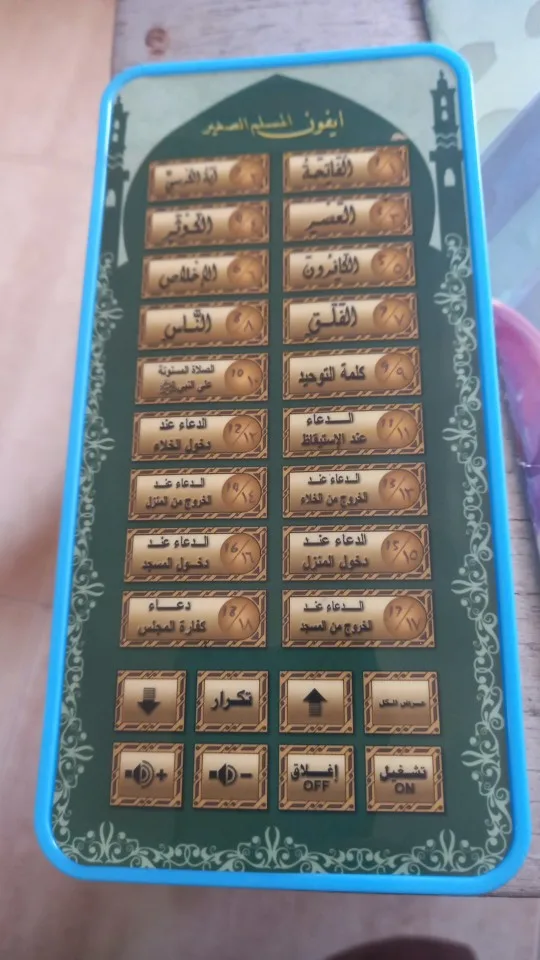 ايفون المسلم الصغير
الفاتحة ١/1
آية الكرسي
العصر ٣
الكوثر
الكافرون ٥
الإخلاص
الفلق ٧
الناس ٨
كلمة التوحيد 9/٩
الصلاة المسنونة 10/١٠
على النبي ﷺ
الدعاء 11/١١
عند الإستيقاظ
الدعاء عند 12/١٢
دخول الخلاء
الدعاء عند 13/١٣
الخروج من الخلاء
الدعاء عند 14/١٤
الخروج من المنزل
الدعاء عند 15/١٥
دخول المنزل
الدعاء عند 16/١٦
دخول المسجد
الدعاء عند 17/١٧
الخروج من المسجد
دعاء 18/١٨
كفارة المجلس
عرض الكل
تكرار
تشغيل
ON
إغلاق
OFF
-
+